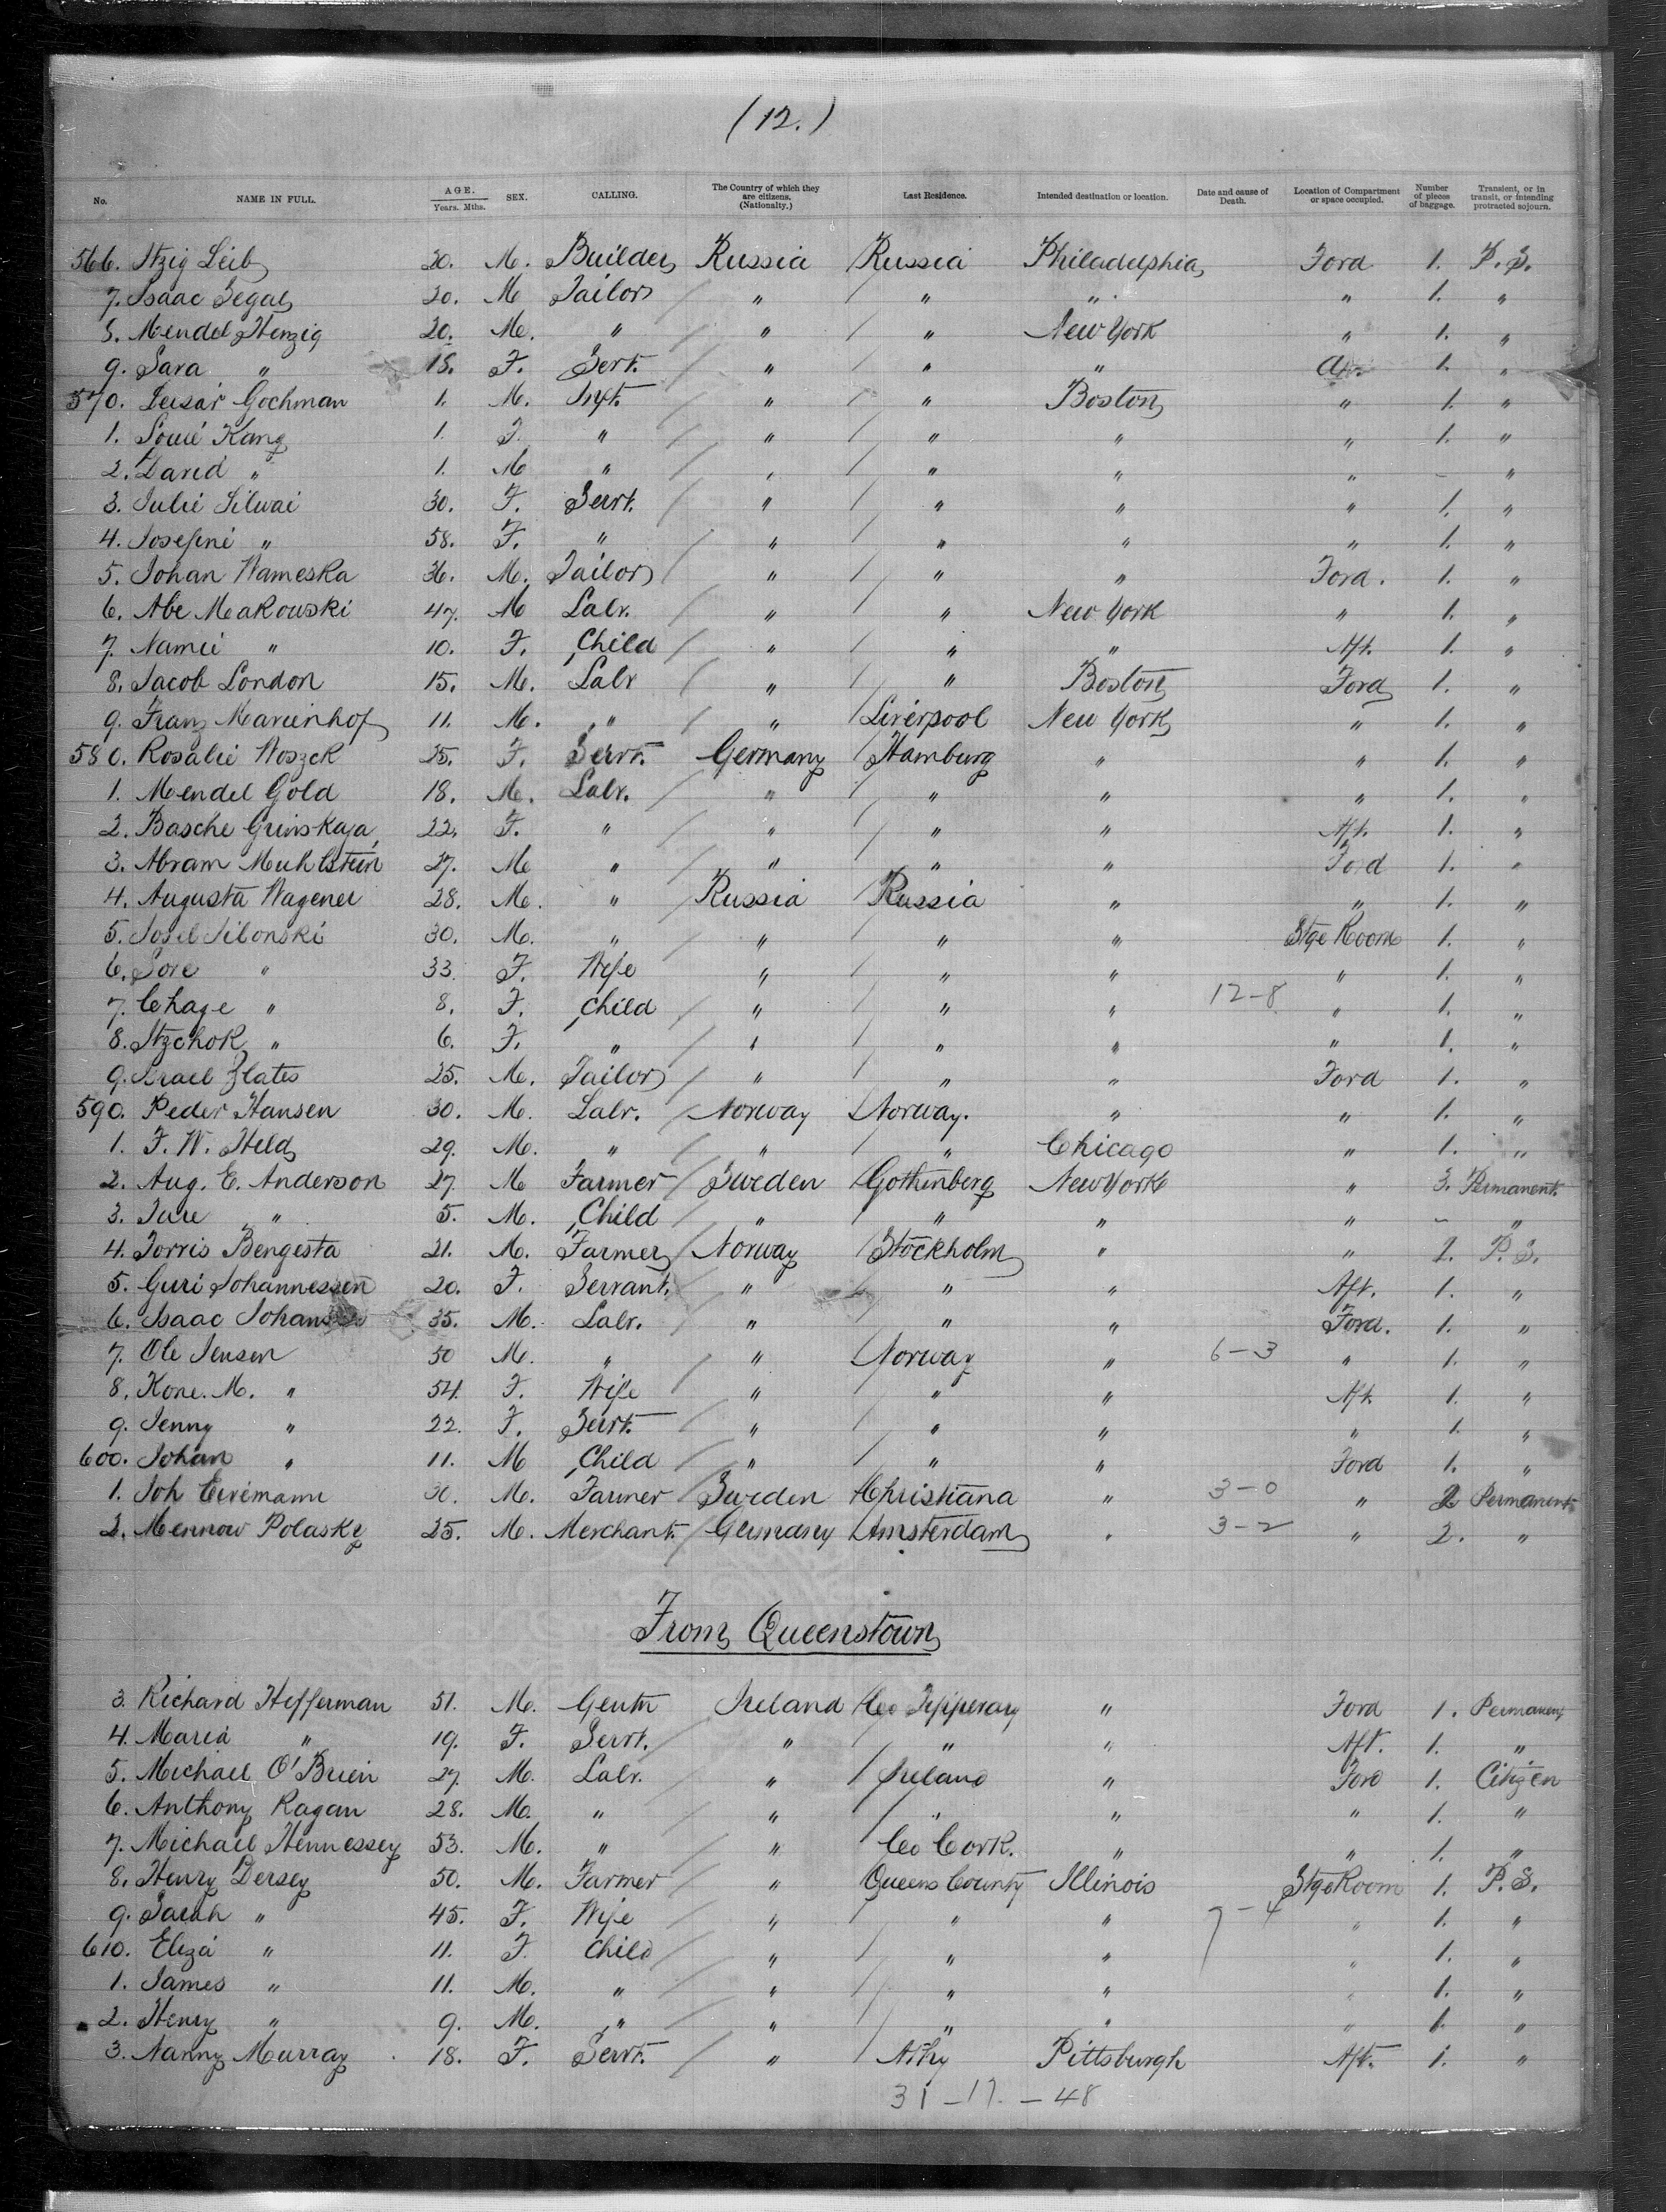 (12.)
No. NAME IN FULL. AGE. Years. Mths. SEX. CALLING. The Country of which they are citizens. (Nationalty.) Last Residence. Intended destination or location. Date and cause of Death. Location of Compartment or space occupied. Number of pieces of baggage. Transient, or in transit, or intending protracted sojourn.
566. Itzig Leib 20. M. Builder Russia Russia Philadelphia Ford 1. P.S.
7. Isaac Segal 20. M Tailor " " " " 1. "
8. Mendel Henzig 20. M. " " " New York " 1. "
9. Sara " 18. F. Servt. " " " Aft. 1. "
570. Leisar Gochman 1. M. Inft. " " Boston " 1. "
1. Louie Kang 1. F. " " " " " 1. "
2. David " 1. M " " " " " - "
3. Julie Silwai 30. F. Servt. " " " " 1. "
4. Josefine " 58. F. " " " " " 1. "
5. Johan Wameska 36. M. Tailor " " " Ford. 1. "
6. Abe Makowski 47. M Labr. " " New York " 1. "
7. Namie " 10. F. Child " " " Aft. 1. "
8. Jacob London 15. M. Labr " " Boston Ford 1. "
9. Franz Marienhof 11. M. " " Liverpool New York " 1. "
580. Rosalie Woszek 25. F. Servt. Germany Hamburg " " 1. "
1. Mendel Gold 18. M. Labr. " " " " 1. "
2. Basche Grinskaja 22. F. " " " " Aft. 1. "
3. Abram Muhlstein 27. M " " " " Ford 1. "
4. Augusta Wagener 28. M. " Russia Russia " " 1. "
5. Josel Silonski 30. M. " " " " Stge Room 1. "
6. Sore " 33. F. Wife " " " " 1. "
7. Chage " 8. F. Child " " " 12-8 " 1. "
8. Itzchok " 6. F. " " " " " 1. "
9. Israel Zlates 25. M. Tailor " " " Ford 1. "
590. Peder Hansen 30. M. Labr. Norway Norway. " " 1. "
1. F. W. Held 29. M. " " " Chicago " 1. "
2. Aug. E. Anderson 27. M Farmer Sweden Gothenberg New York " 3. Permanent.
3. Ture " 5. M. Child " " " " - "
4. Torris Bengesta 21. M. Farmer Norway Stockholm " " 1. P.S.
5. Guri Johannessen 20. F. Servant. " " " Aft. 1. "
6. Isaac Johansen 35. M. Labr. " " " Ford. 1. "
7. Ole Jensen 50 M. " " Norway " 6-3 " 1. "
8. Kone. M. " 54. F. Wife " " " Aft. 1. "
9. Jenny " 22. F. Servt. " " " " 1. "
600. Johan " 11. M Child " " " Ford 1. "
1. Joh 30. M. Farmer Sweden Christiana " 3-0 " 2 Permanent
2. Mennow Polasky 25. M. Merchant. Germany Amsterdam " 3-2 " 2. "
From Queenstown
3. Richard Hefferman 51. M. Gentn Ireland Co Tipperary " Ford 1. Permanent
4. Maria " 19. F. Servt. " " " Aft. 1. "
5. Michael O'Brien 27. M. Labr. " Ireland " Ford 1. Citizen
6. Anthony Ragan 28. M. " " " " " 1. "
7. Michael Hennessey 53. M. " " Co Cork. " " 1. "
8. Henry Dersey 50. M. Farmer " Queens County Illinois Stge Room 1. P.S.
9. Sarah " 45. F. Wife " " " 7-4 " 1. "
610. Eliza " 11. F. Child " " " " 1. "
1. James " 11. M. " " " " " 1. "
2. Henry " 9. M. " " " " " 1. "
3. Nanny Murray 18. F. Servt. " Athy Pittsburgh Aft. 1. "
31-17.-48